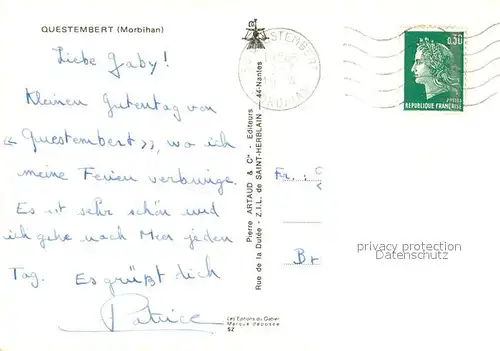 QUESTEMBERT (Morbihan)
Liebe Gaby!
Kleinen Gutentag von
« Questembert », wo ich
meine Ferien verbringe.
Es ist sehr schön und
ich gehe nach Meer jeden
Tag. Es grüßt dich
Patrice
Pierre ARTAUD & Cie - Editeurs
Rue de la Dutée - Z.I.L. de SAINT-HERBLAIN - 44-Nantes
Les Editions du Gabier
Marque déposée
52
QUESTEMBERT
0,30
REPUBLIQUE FRANÇAISE
Fr. :
Br
privacy protection
VALIDATED